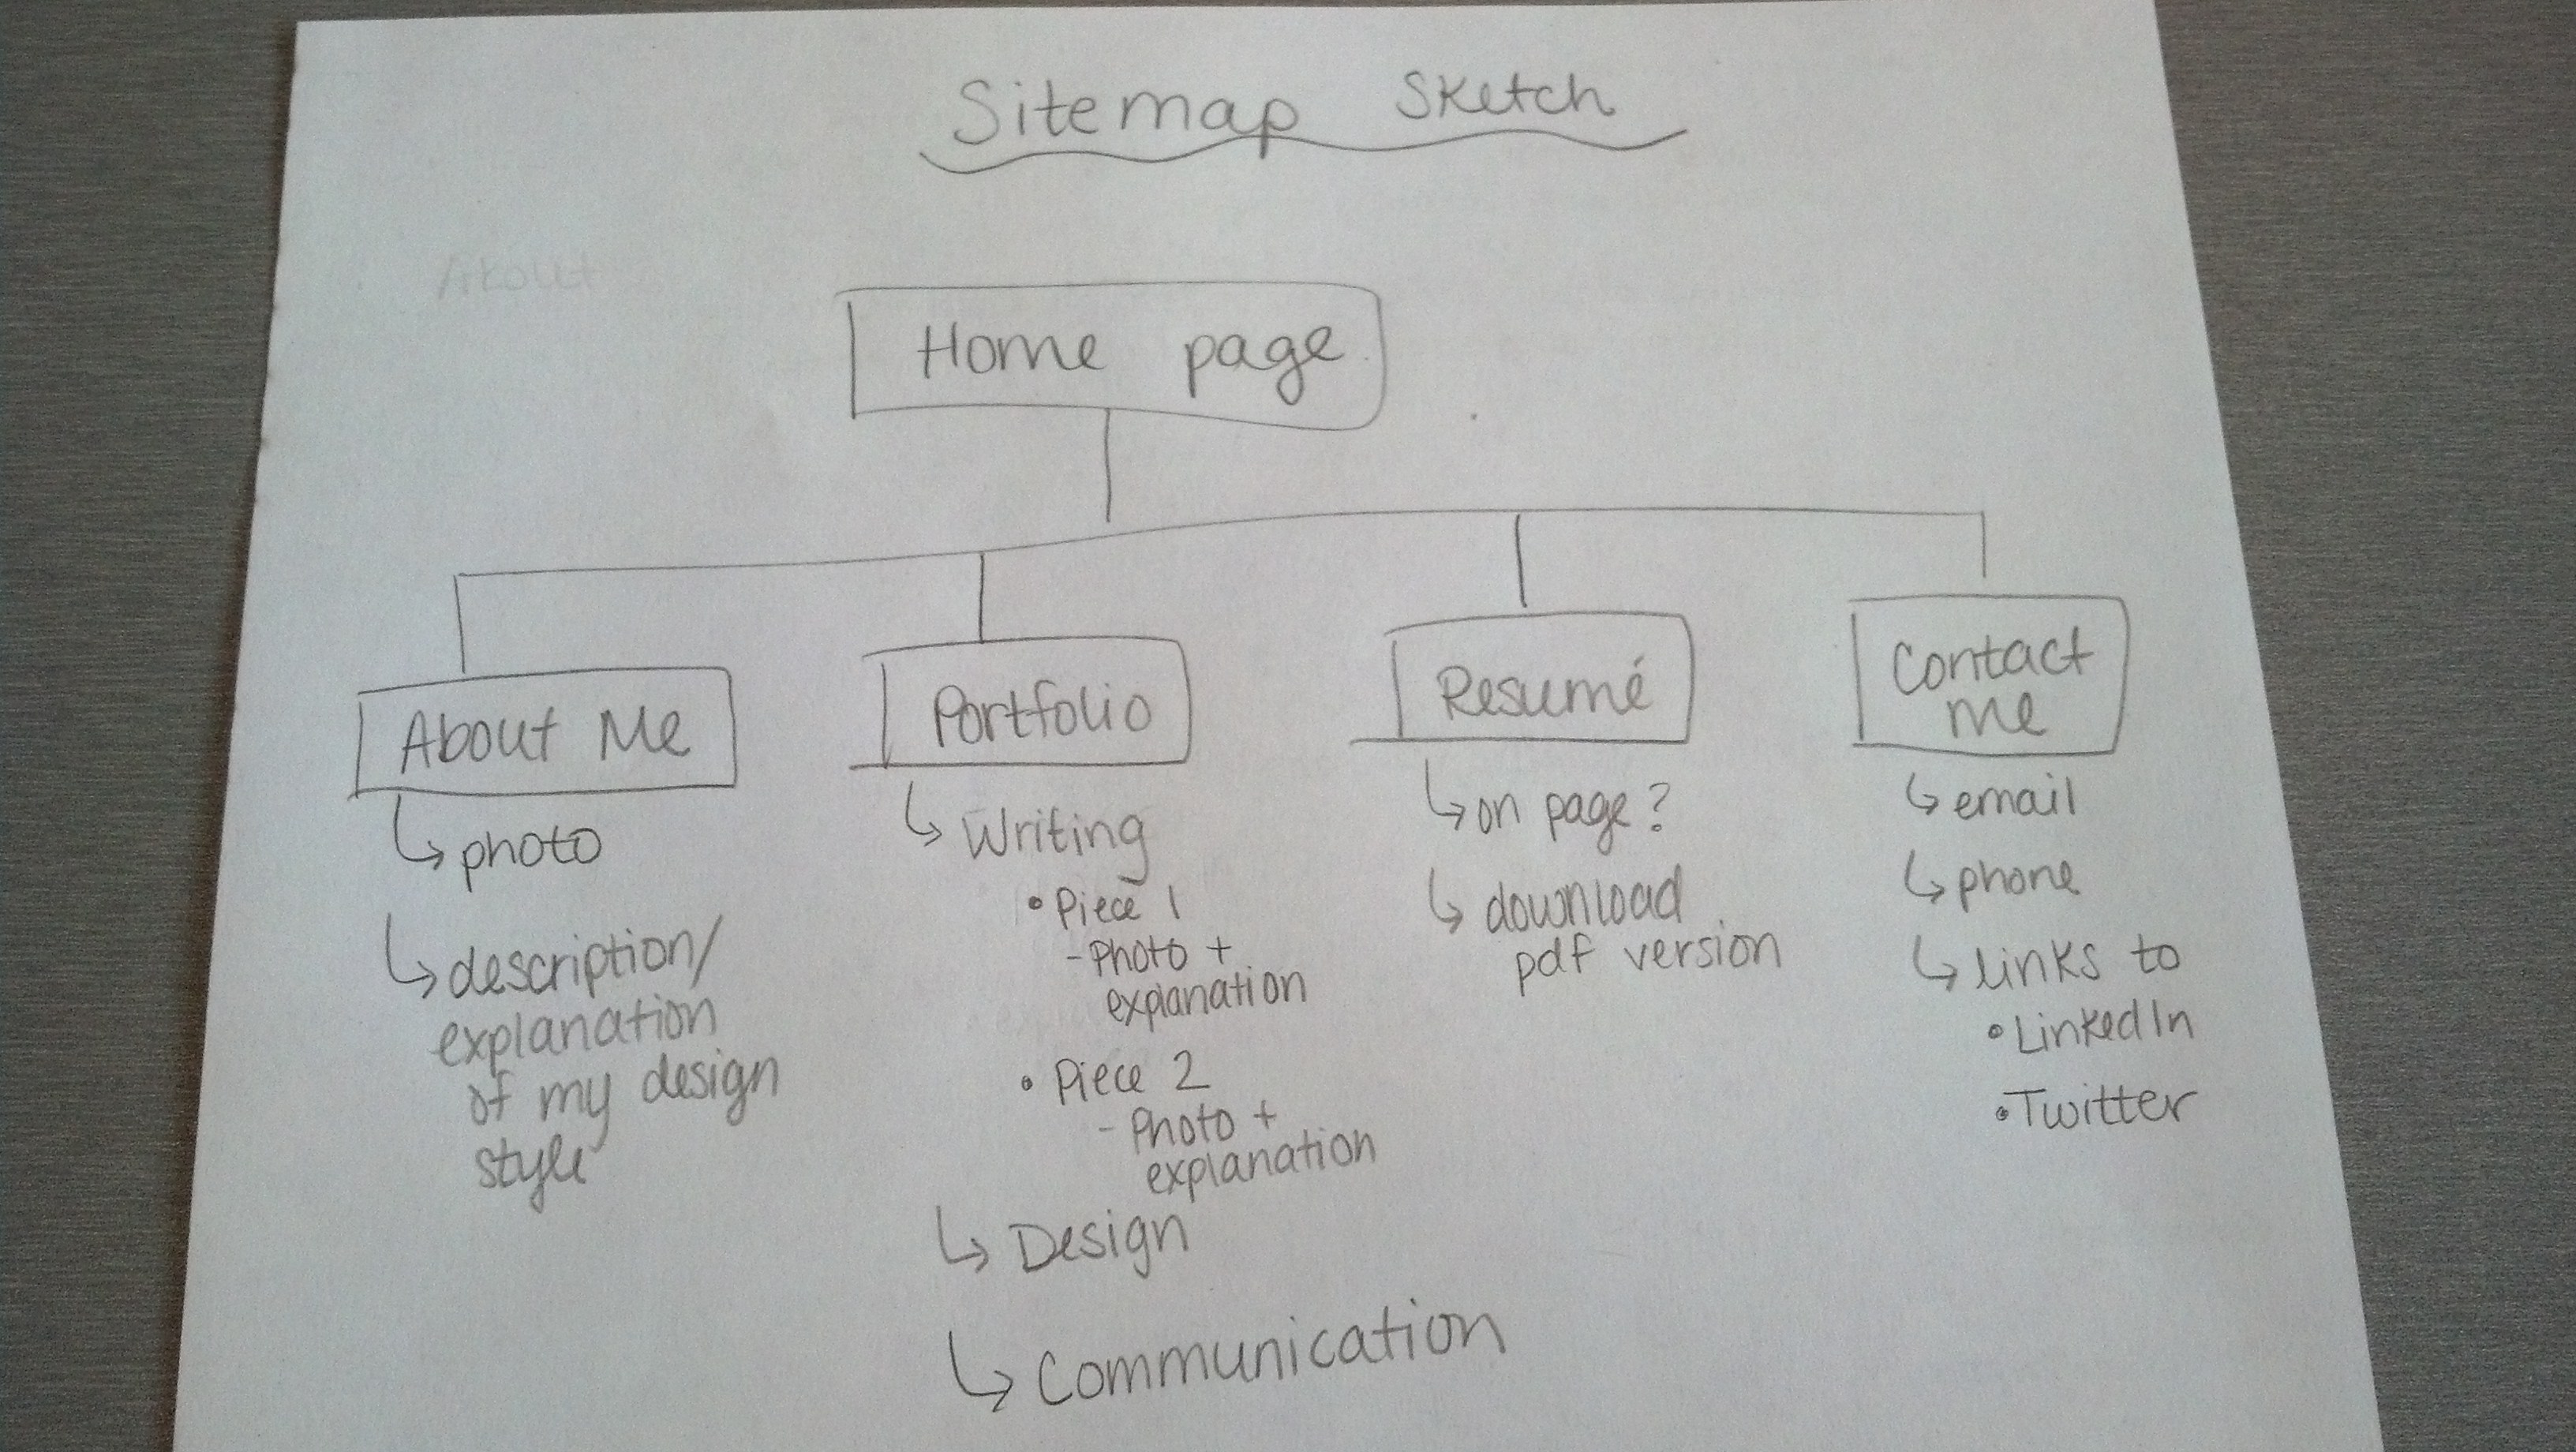 Sitemap Sketch
About
Home page
About Me
↳ photo
↳ description/
explanation
of my design
style
Portfolio
↳ Writing
• Piece 1
- Photo +
explanation
• Piece 2
- Photo +
explanation
↳ Design
↳ Communication
Resumé
↳ on page?
↳ download
pdf version
Contact
me
↳ email
↳ phone
↳ links to
• LinkedIn
• Twitter